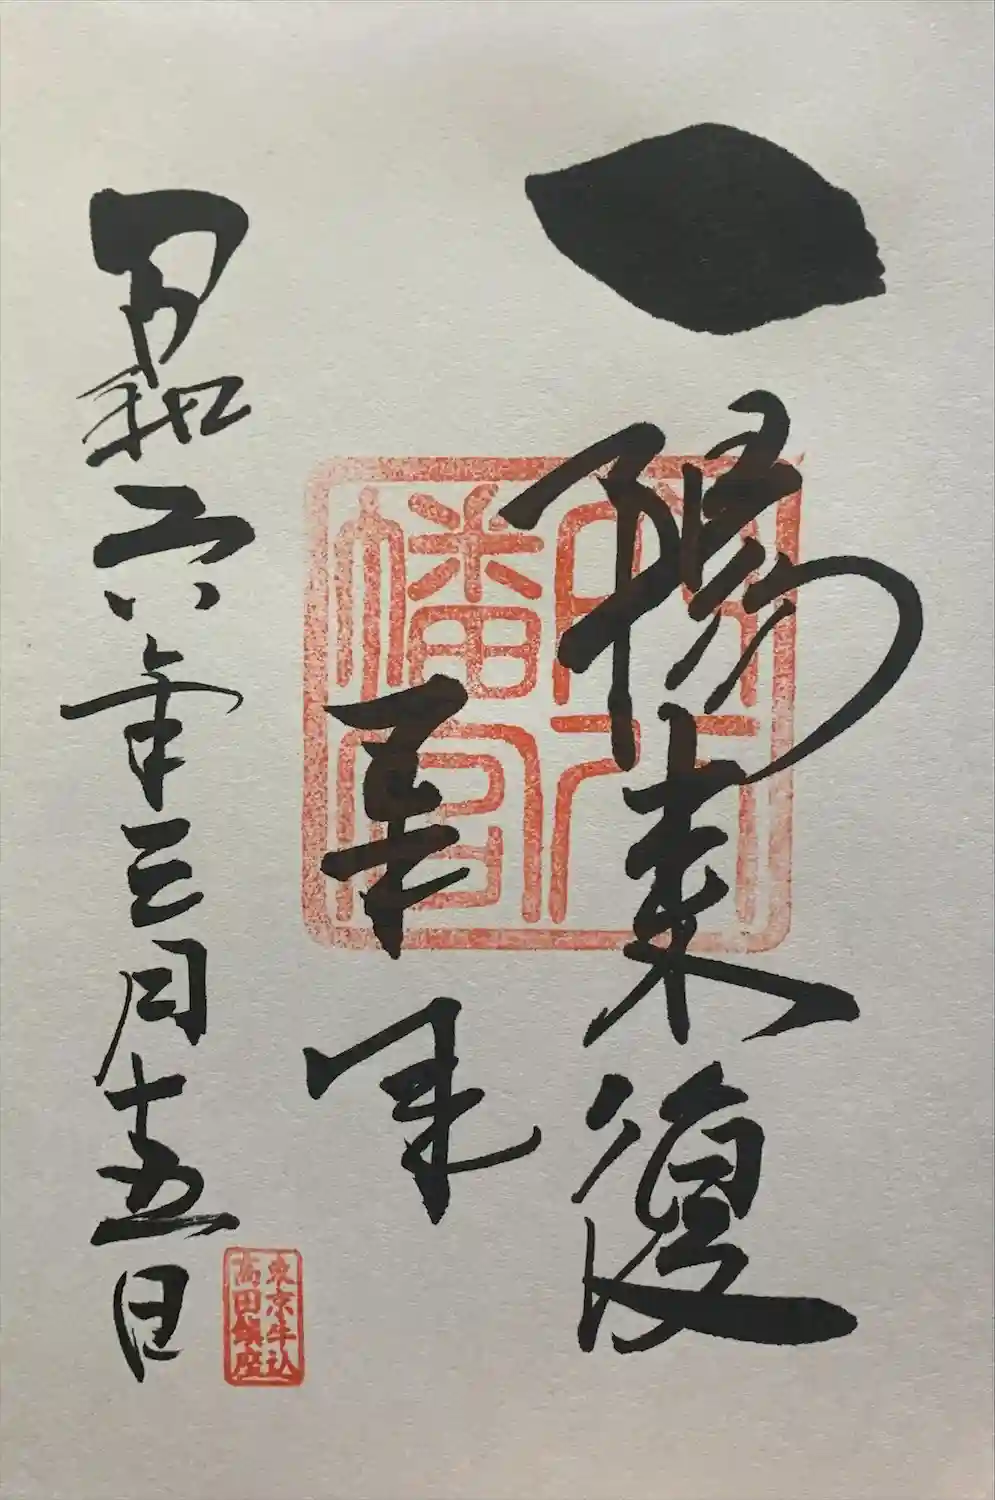 一陽来復
奉拝
昭和六年三月十五日
穴八幡宮
東京牛込
高田鎮座